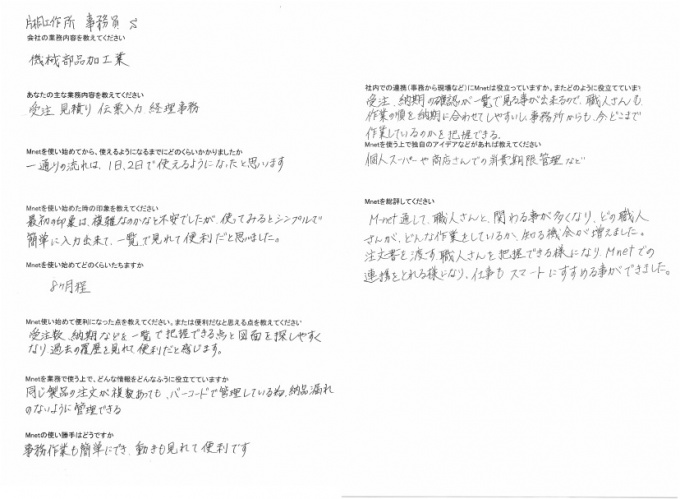 工作所 事務員 S
会社の業務内容を教えてください
機械部品加工業
あなたの主な業務内容を教えてください
受注 見積り 伝票入力 経理事務
Mnetを使い始めてから、使えるようになるまでにどのくらいかかりましたか
一通りの流れは、1日、2日で使えるようになったと思います
Mnetを使い始めた時の印象を教えてください
最初の印象は、複雑なのかなと不安でしたが、使ってみるとシンプルで
簡単に入力出来て、一覧で見れて便利だと思いました。
Mnetを使い始めてどのくらいたちますか
8ヶ月程
Mnet使い始めて便利になった点を教えてください。または便利だなと思える点を教えてください
受注数、納期などを一覧で把握できる点と図面を探しやすく
なり過去の履歴を見れて便利だと感じます。
Mnetを業務で使う上で、どんな情報をどんなふうに役立てていますか
同じ製品の注文が複数あっても、バーコードで管理している為、納品漏れ
のないように管理できる
Mnetの使い勝手はどうですか
事務作業も簡単にでき、動きも見れて便利です
社内での連携(事務から現場など)にMnetは役立っていますか。またどのように役立てていま
受注、納期の確認が一覧で見る事が出来るので、職人さんも
作業の順を納期に合わせてしやすいし、事務所からも、今どこまで
作業しているのかを把握できる。
Mnetを使う上で独自のアイデアなどがあれば教えてください
個人スーパーや商店さんでの消費期限管理など
Mnetを総評してください
Mnet通して、職人さんと、関わる事が多くなり、どの職人
さんが、どんな作業をしているか、知る機会が増えました。
注文書を渡す職人さんを把握できる様になり、Mnetでの
連携をとれる様になり、仕事もスマートにすすめる事ができました。